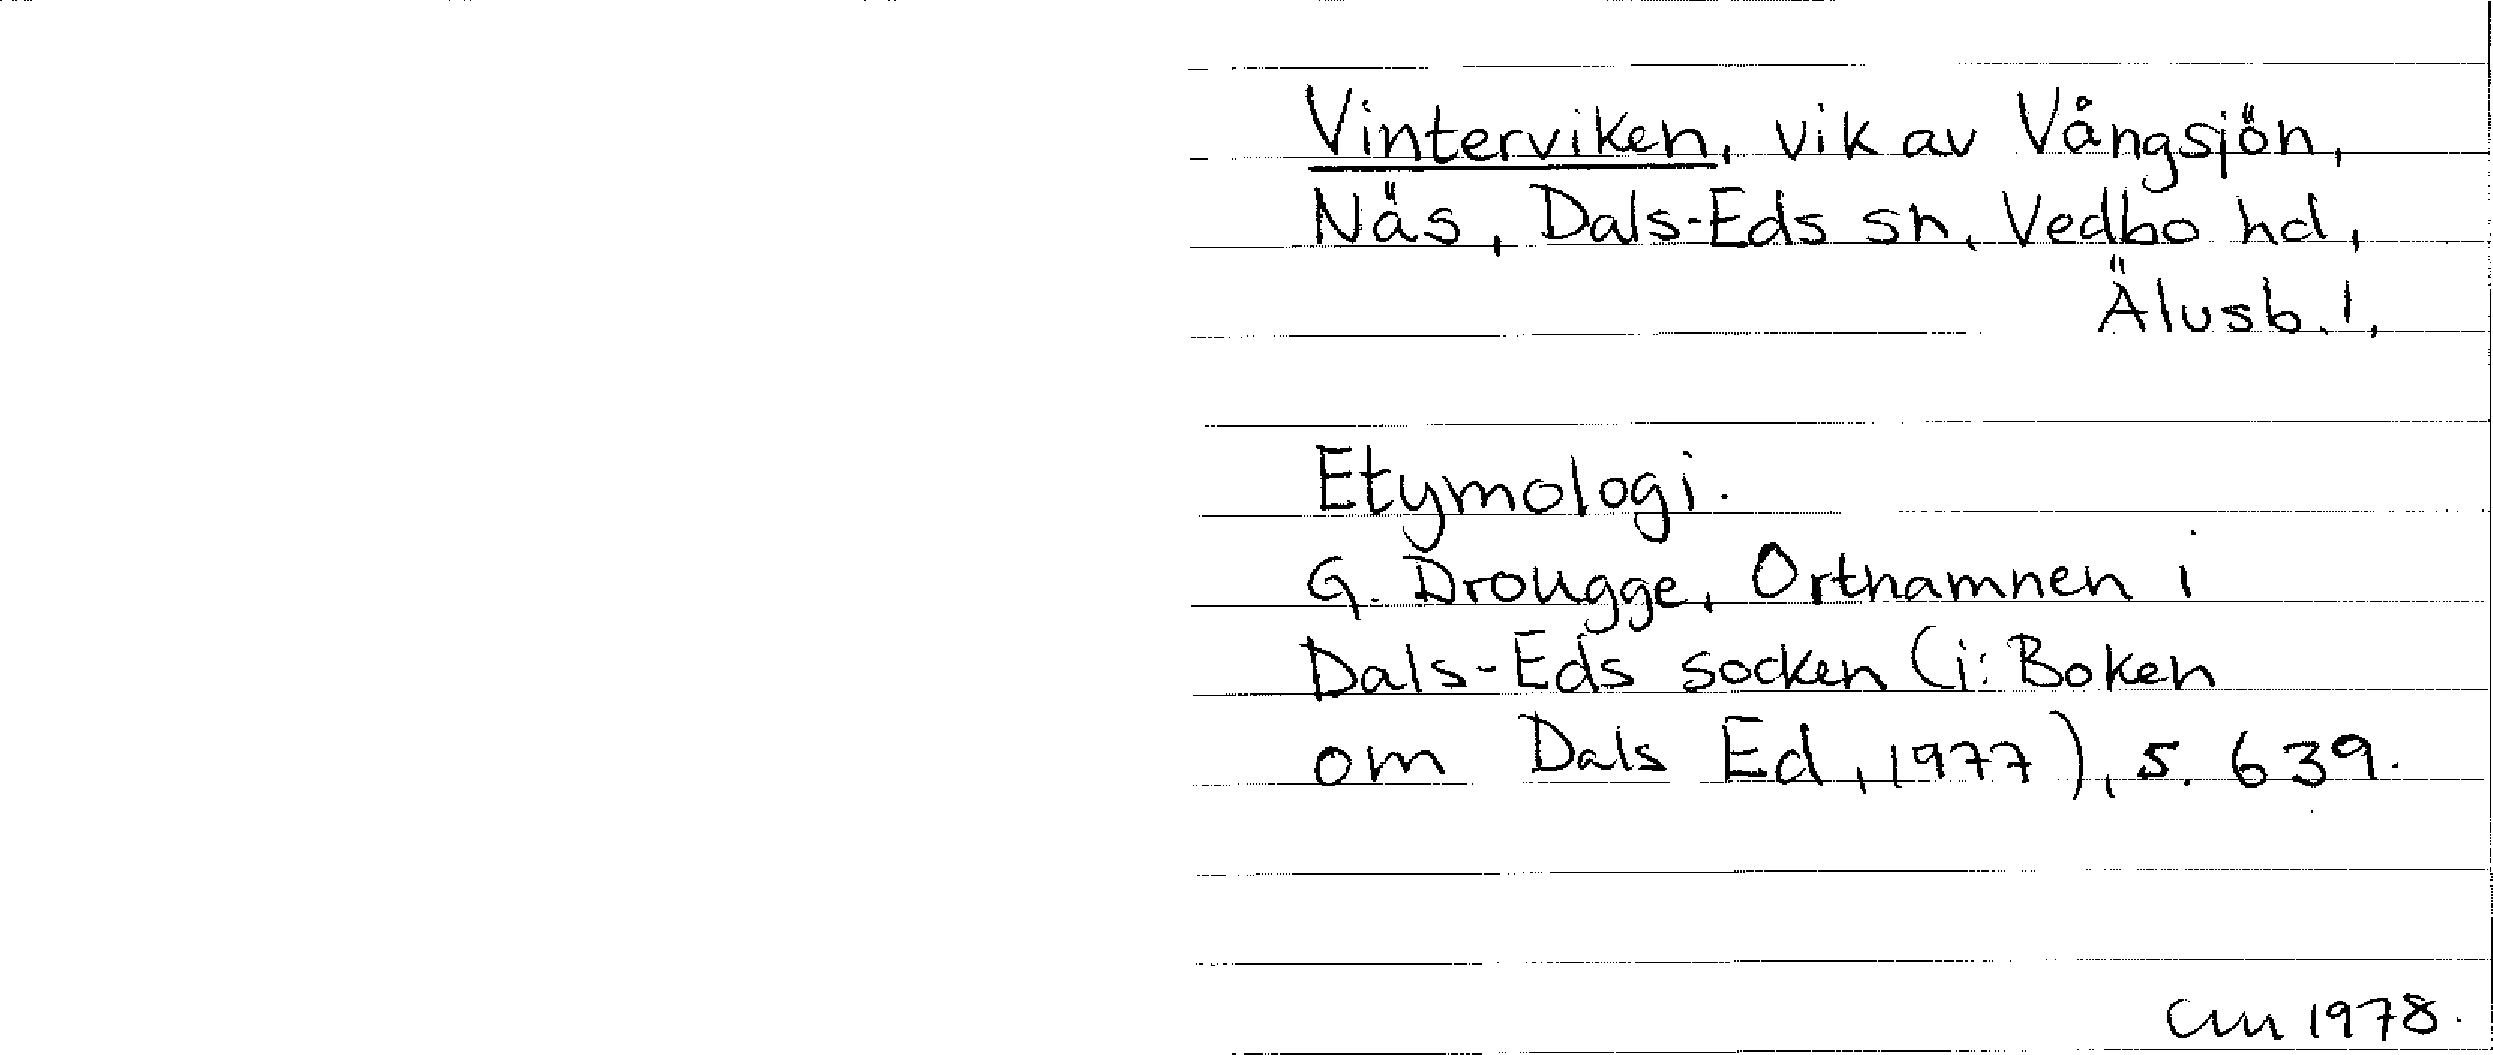 Vinterviken, vik av Vångsjön,
Näs, Dals-Eds sn, Vedbo hd,
Älvsb. l.
Etymologi.
G. Drougge, Ortnamnen i
Dals-Eds socken (i: Boken
om Dals Ed, 1977), s. 639.
1978.